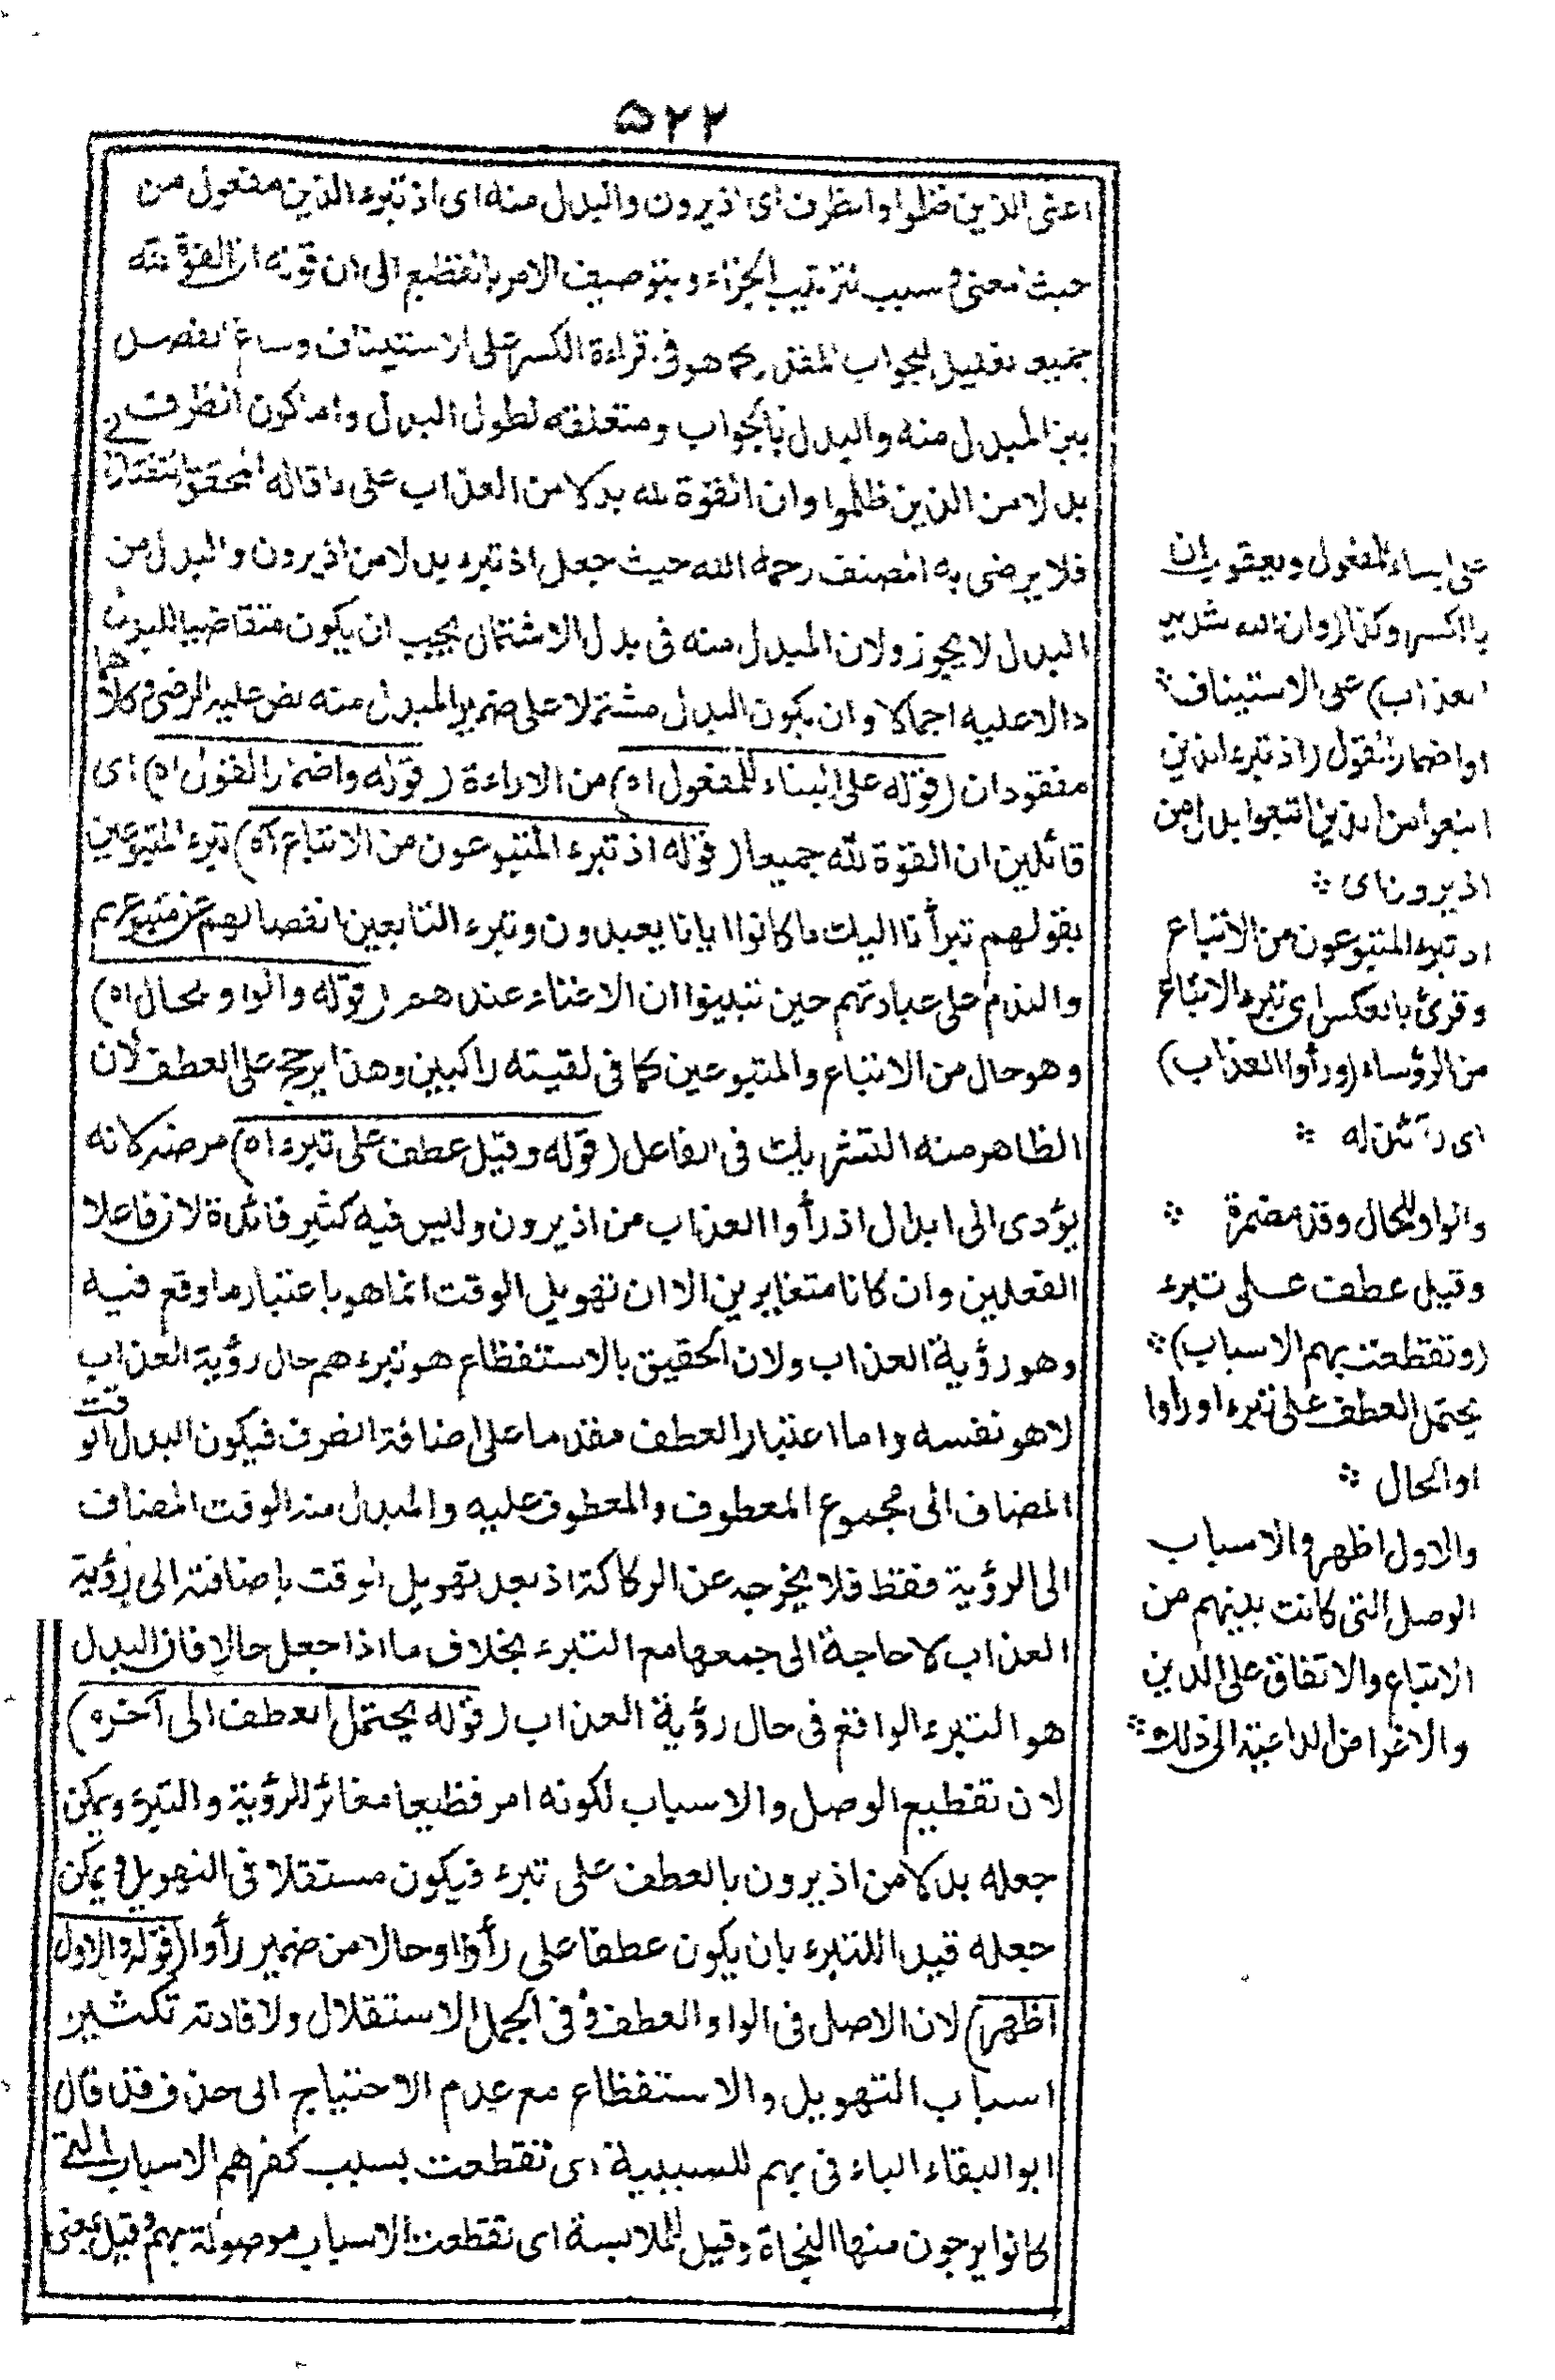 ۵۲۲
اعنى الذين ظلموا والظرف اى اذ يرون والبدل منه اى اذ تبرء الذين مفعول من
حيث المعنى وسبب لترتيب الجزاء وبتوصيف الامر بالفظيع الى ان قوله ان القوة لله
جميعا تعليل للجواب المقدر كما هو فى قراءة الكسر على الاستيناف وساغ الفصل
بين المبدل منه والبدل بالجواب ومتعلقه لطول البدل واما كون الظرف
بدلا من الذين ظلموا وان القوة لله بدلا من العذاب على ما قاله المحقق التفتازانى
فلا يرضى به المصنف رحمه الله حيث جعل اذ تبرء بدلا من اذ يرون والبدل من
البدل لا يجوز ولان المبدل منه فى بدل الاشتمال يجب ان يكون متقاضيا للبدل
دالا عليه اجمالا وان يكون البدل مشتملا على ضمير المبدل منه نص عليه الرضى وكلاهما
مفقودان (قوله على البناء للمفعول اه) من الاراءة (قوله واضمار القول اه) اى
قائلين ان القوة لله جميعا (قوله اذ تبرء المتبوعون من الاتباع اه) تبرء المتبوعين
بقولهم تبرأنا اليك ما كانوا ايانا يعبدون وتبرء التابعين انفصالهم عن متبوعيهم
والندم على عبادتهم حين تبينوا ان الاغناء عندهم (قوله والواو للحال اه)
وهو حال من الاتباع والمتبوعين كما فى لقيته راكبين وهذا يرجح على العطف لان
الظاهر منه التشريك فى الفاعل (قوله وقيل عطف على تبرء اه) مرضه لانه
يؤدى الى ابدال اذ رأوا العذاب من اذ يرون وليس فيه كثير فائدة لان فاعلا
الفعلين وان كانا متغايرين الا ان تهويل الوقت انما هو باعتبار ما وقع فيه
وهو رؤية العذاب ولان الحقيق بالاستفظاع هو تبرءهم حال رؤية العذاب
لا هو نفسه واما اعتبار العطف مقدما على اضافة الظرف فيكون البدل الوقت
المضاف الى مجموع المعطوف والمعطوف عليه والمبدل منه الوقت المضاف
الى الرؤية فقط فلا يخرجه عن الركاكة اذ بعد تهويل الوقت باضافته الى رؤية
العذاب لا حاجة الى جمعها مع التبرء بخلاف ما اذا جعل حالا فان البدل
هو التبرء الواقع فى حال رؤية العذاب (قوله يحتمل العطف الى آخره)
لان تقطيع الوصل والاسباب لكونه امر فظيعا مغائر للرؤية والتبرء ويمكن
جعله بدلا من اذ يرون بالعطف على تبرء فيكون مستقلا فى التهويل ويمكن
جعله قيدا للتبرء بان يكون عطفا على رأوا او حالا من ضمير رأوا (قوله والاول
اظهر) لان الاصل فى الواو العطف وفى الجمل الاستقلال ولافادته تكثير
اسباب التهويل والاستفظاع مع عدم الاحتياج الى حذف قد قال
ابو البقاء الباء فى بهم للسببية اى تقطعت بسبب كفرهم الاسباب التى
كانوا يرجون منها النجاة وقيل للملابسة اى تقطعت الاسباب موصولة بهم وقيل بمعنى
على البناء للمفعول ويعقوب ان
بالكسر وكذا (وان الله شديد
العذاب) على الاستيناف
او اضمار القول (اذ تبرء الذين
اتبعوا من الذين اتبعوا بدل من
اذ يرون اى
اذ تبرء المتبوعون من الاتباع
وقرئ بالعكس اى تبرء الاتباع
من الرؤساء (ورأوا العذاب)
اى رائين له
والواو للحال وقد مضمرة
وقيل عطف على تبرء
(وتقطعت بهم الاسباب)
يحتمل العطف على تبرء او رأوا
او الحال
والاول اظهر والاسباب
الوصل التى كانت بينهم من
الاتباع والاتفاق على الدين
والاغراض الداعية الى ذلك